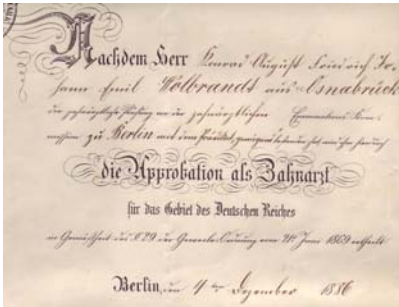 Nachdem Herr Konrad August Friedrich Jo-
hann Emil Wolbrandt aus Osnabrück
die zahnärztliche Prüfung vor der zahnärztlichen Examinations-Kom-
mission zu Berlin mit dem Prädikat genügend bestanden hat, wird ihm hierdurch
die Approbation als Zahnarzt
für das Gebiet des Deutschen Reiches
in Gemäßheit des § 29 der Gewerbe-Ordnung vom 21. Juni 1869 ertheilt
Berlin, den Dezember 1886